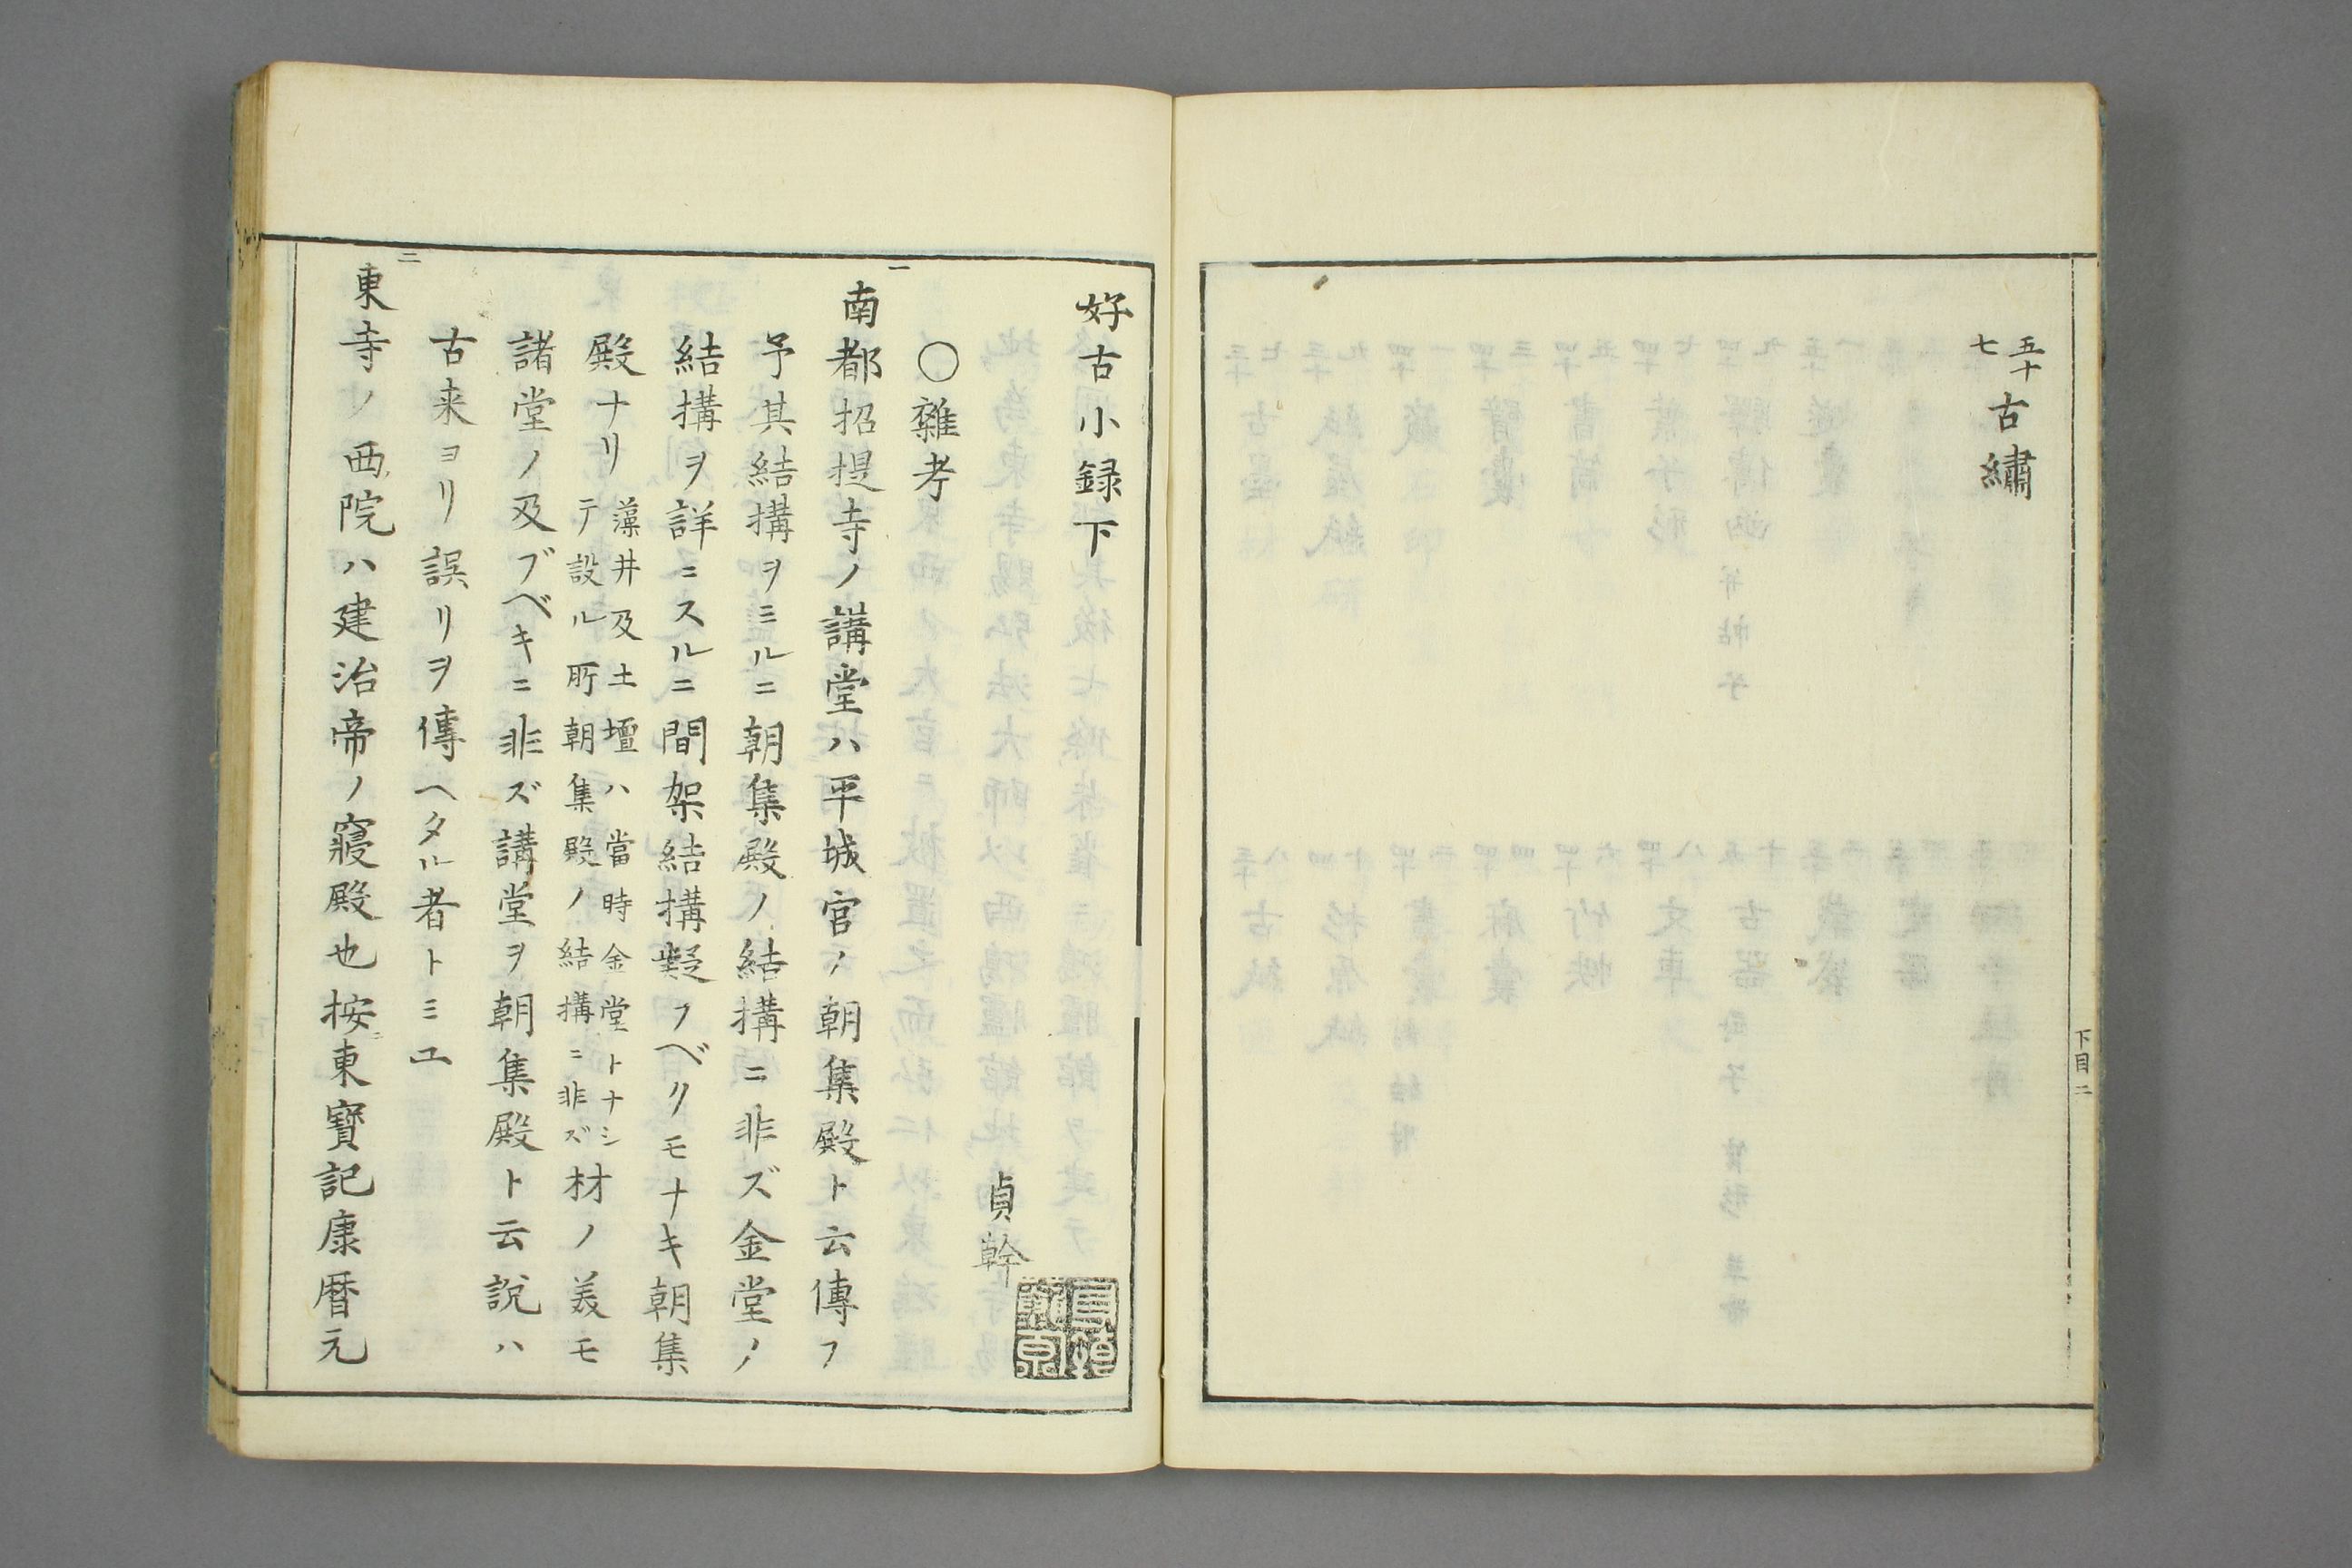 五十七 古繡
下目二
好古小録下
貞幹
○雜考
一
南都招提寺ノ講堂ハ平城宮ノ朝集殿ト云傳フ
予其結搆ヲミルニ朝集殿ノ結搆ニ非ズ金堂ノ
結搆ヲ詳ニスルニ間架結搆疑フベクモナキ朝集
殿ナリ
藻井及土壇ハ當時金堂トナシ
テ設ル所朝集殿ノ結搆ニ非ズ
材ノ美モ
諸堂ノ及ブベキニ非ズ講堂ヲ朝集殿ト云説ハ
古来ヨリ誤リヲ傳ヘタル者トミユ
二
東寺ノ西院ハ建治帝ノ寢殿也按東寳記康暦元